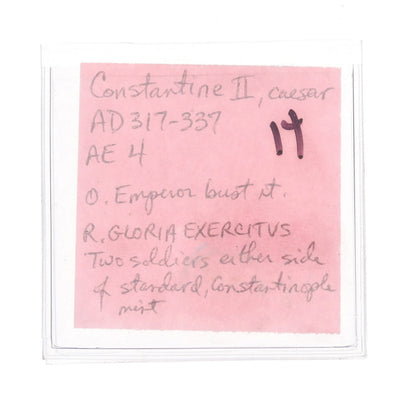 Constantine II, caesar
AD 317-337
14
AE 4
O. Emperor bust rt.
R. GLORIA EXERCITUS
Two soldiers either side
of standard, Constantinople
mint